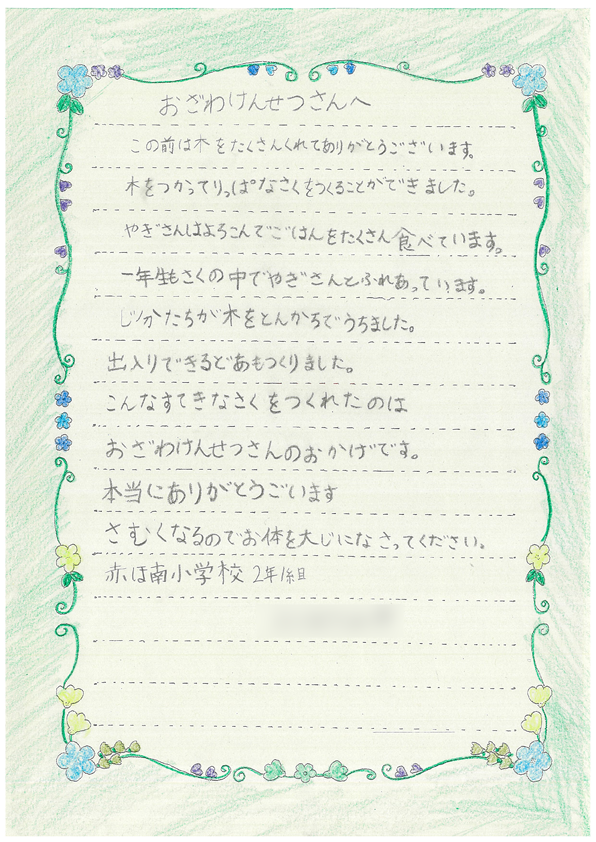 おざわけんせつさんへ
この前は木をたくさんくれてありがとうございます。
木をつかってりっぱなさくをつくることができました。
やぎさんはよろこんでごはんをたくさん食べています。
一年生もさくの中でやぎさんとふれあっています。
じ分たちが木をとんかちでうちました。
出入りできるどあもつくりました。
こんなすてきなさくをつくれたのは
おざわけんせつさんのおかげです。
本当にありがとうごいます
さむくなるのでお体を大じになさってください。
赤ほ南小学校 2年1組